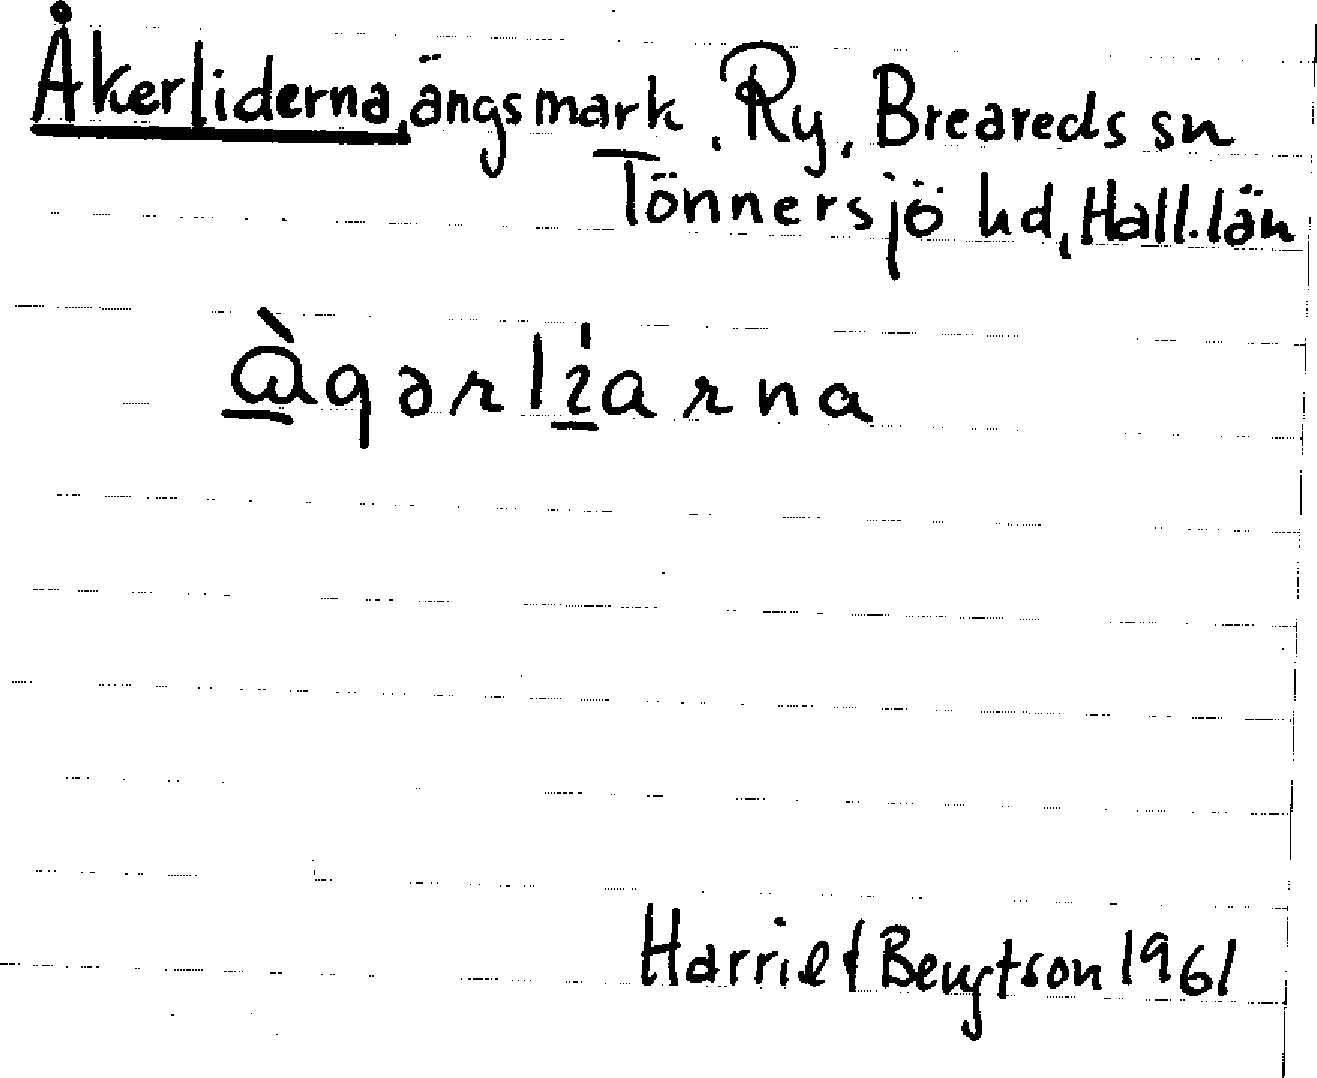 Åkerliderna, ängsmark, Ry, Breareds sn
Tönnersjö hd, Hall. län
Harriet Bengtson 1961